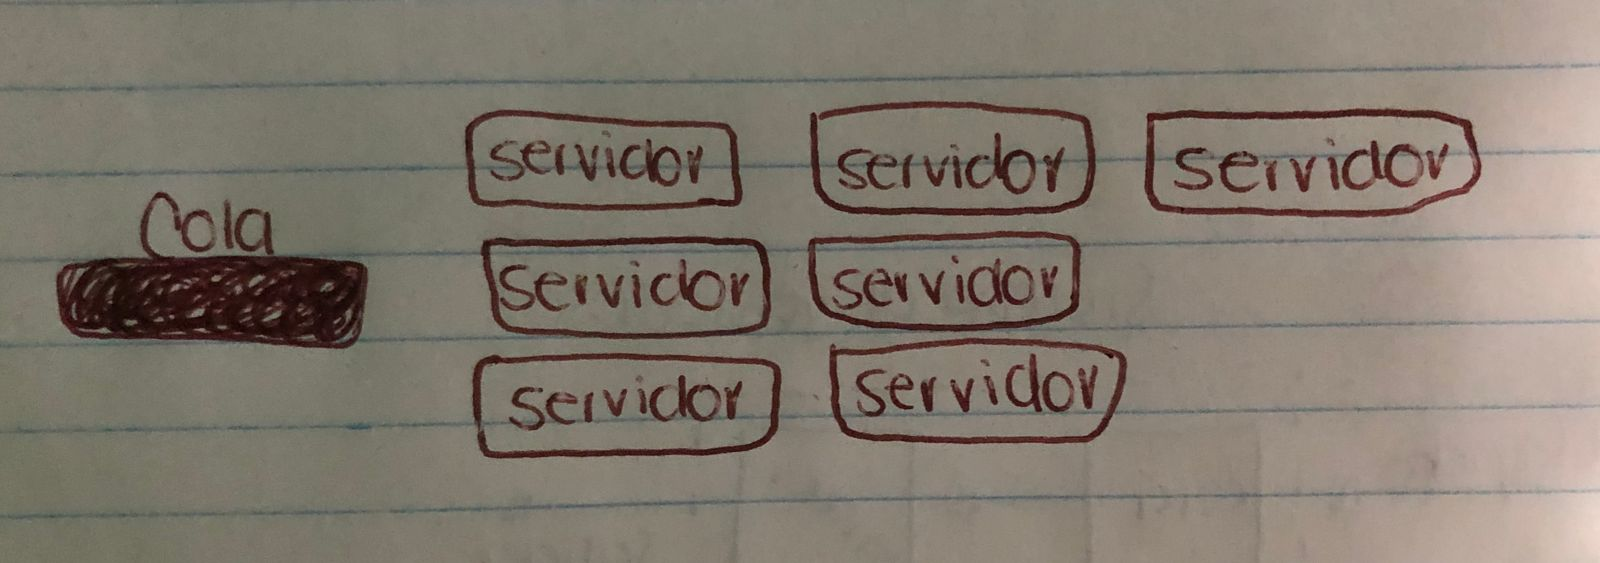 Cola
servidor servidor servidor
servidor servidor
servidor servidor